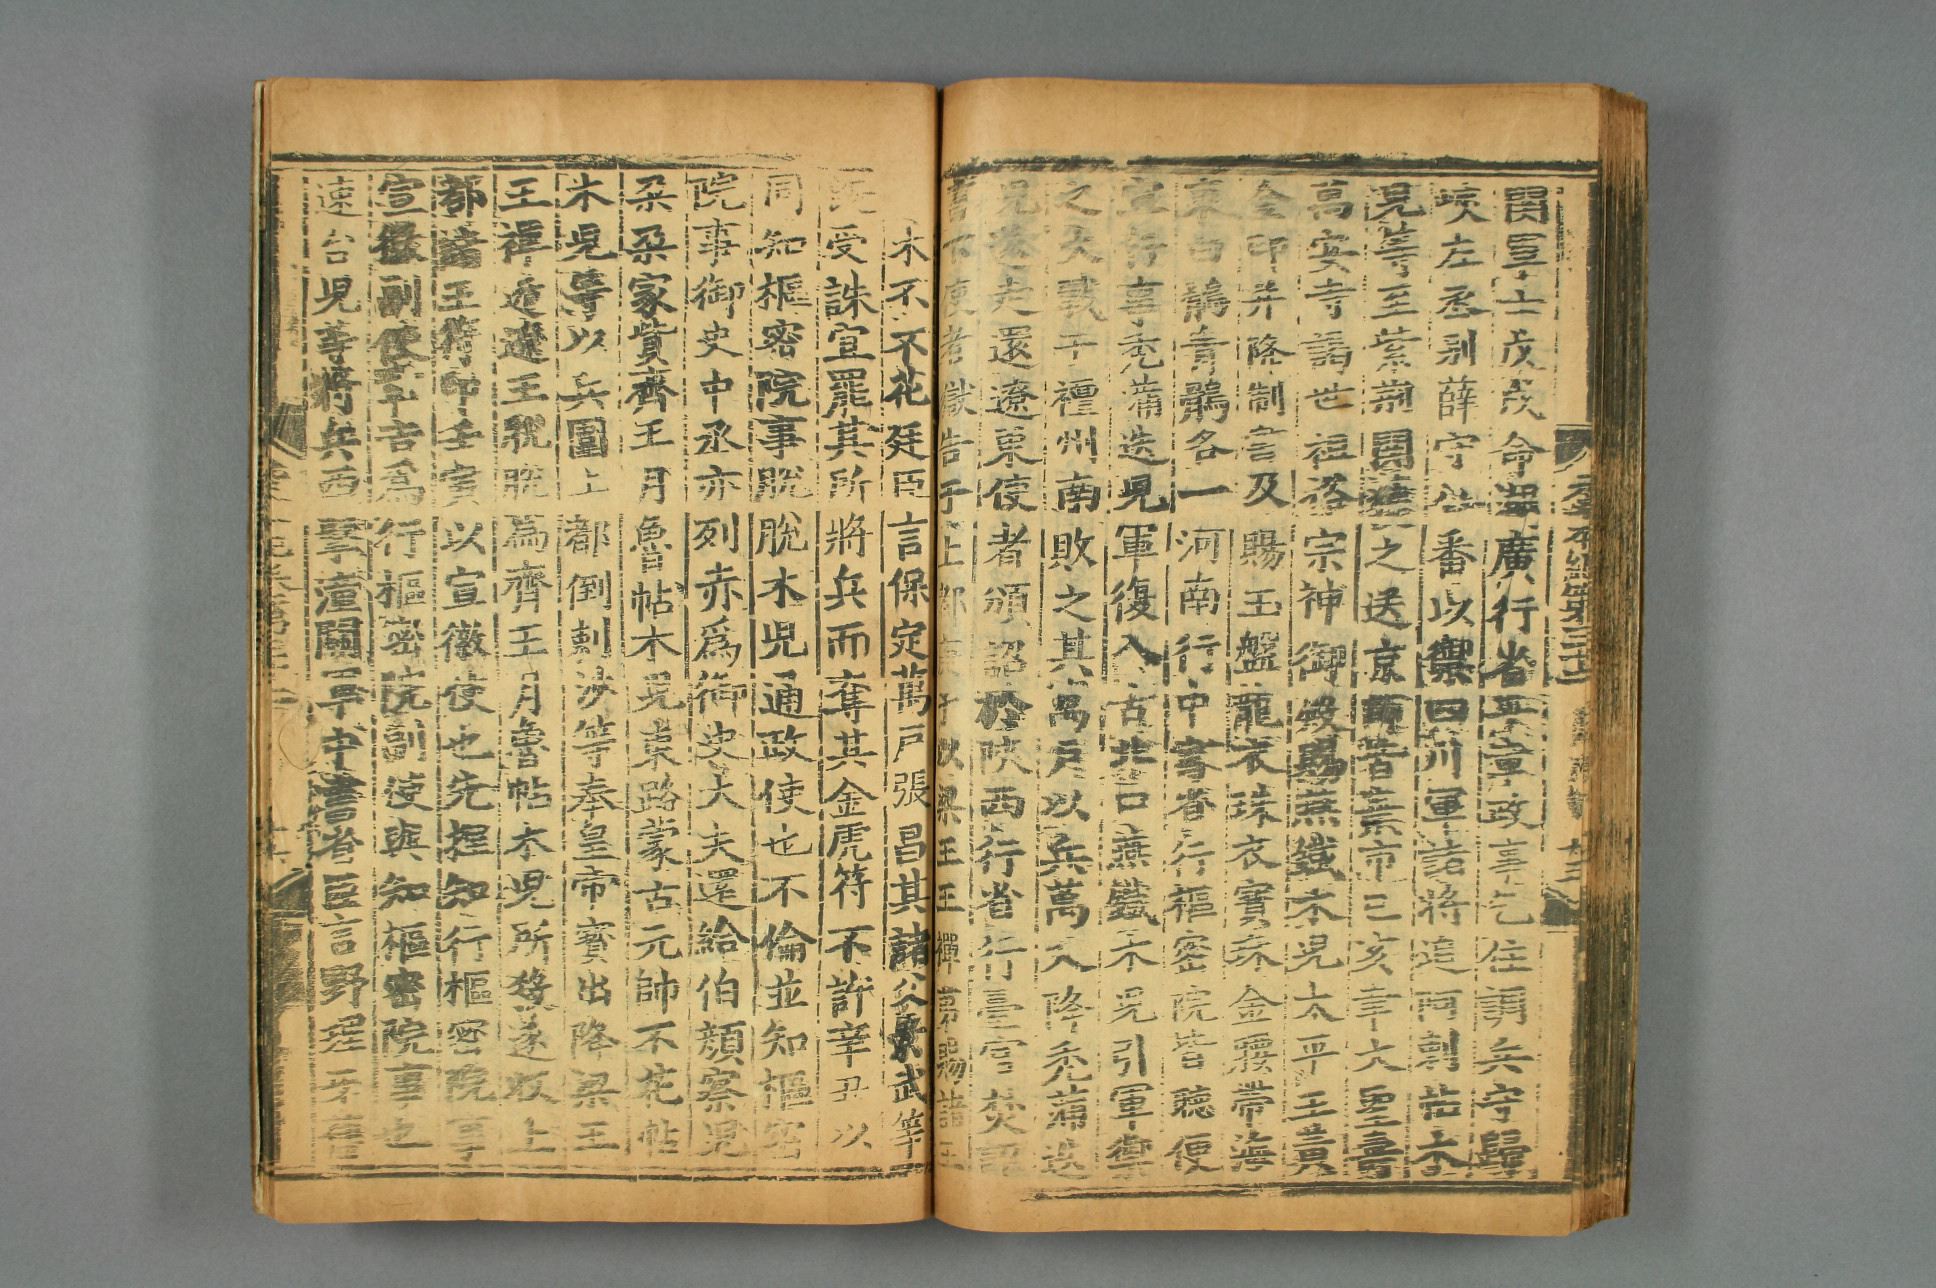 関軍士戊戌命湖廣行省平章政事乞住調兵守歸
峽左丞别薛守沙番以禦四川軍諸將追阿剌帖木
児等至紫荆関獲之送京師皆棄市己亥幸大聖壽
萬安寺謁世祖裕宗神御殿賜燕鐵木児太平王黄
金印并降制書及賜玉盤龍衣珠衣寳珠金腰帶海
東白鶻青鶻各一河南行中書省行樞密院皆聽便
宜行事秃滿迭児軍復入古北口燕鐵木児引軍禦
之大戰于檀州南敗之其萬戸以兵萬人降秃滿迭
児遂走還遼東使者頒詔於陝西行省行臺官焚詔
書下使者獄告于上都庚子以梁王王禪第賜諸王
木不不花廷臣言保定萬戸張昌其諸父景武等
既受誅宣罷其所將兵而奪其金虎符不許辛丑以
同知樞密院事脱脱木児通政使也不倫並知樞密
院事御史中丞亦列赤爲御史大夫還給伯顔察児
朶朶家貲齊王月魯帖木児東路蒙古元帥不花帖
木児等以兵圍上都倒剌沙等奉皇帝寳出降梁王
王禪遁遼王脱脱爲齊王月魯帖木児所殺遂收上
都諸王符印壬寅以宣徽使也先捏知行樞密院事
宣徽副使章吉爲行樞密院副使與知樞密院事也
速台児等將兵西擊潼關軍中書省臣言野理牙舊